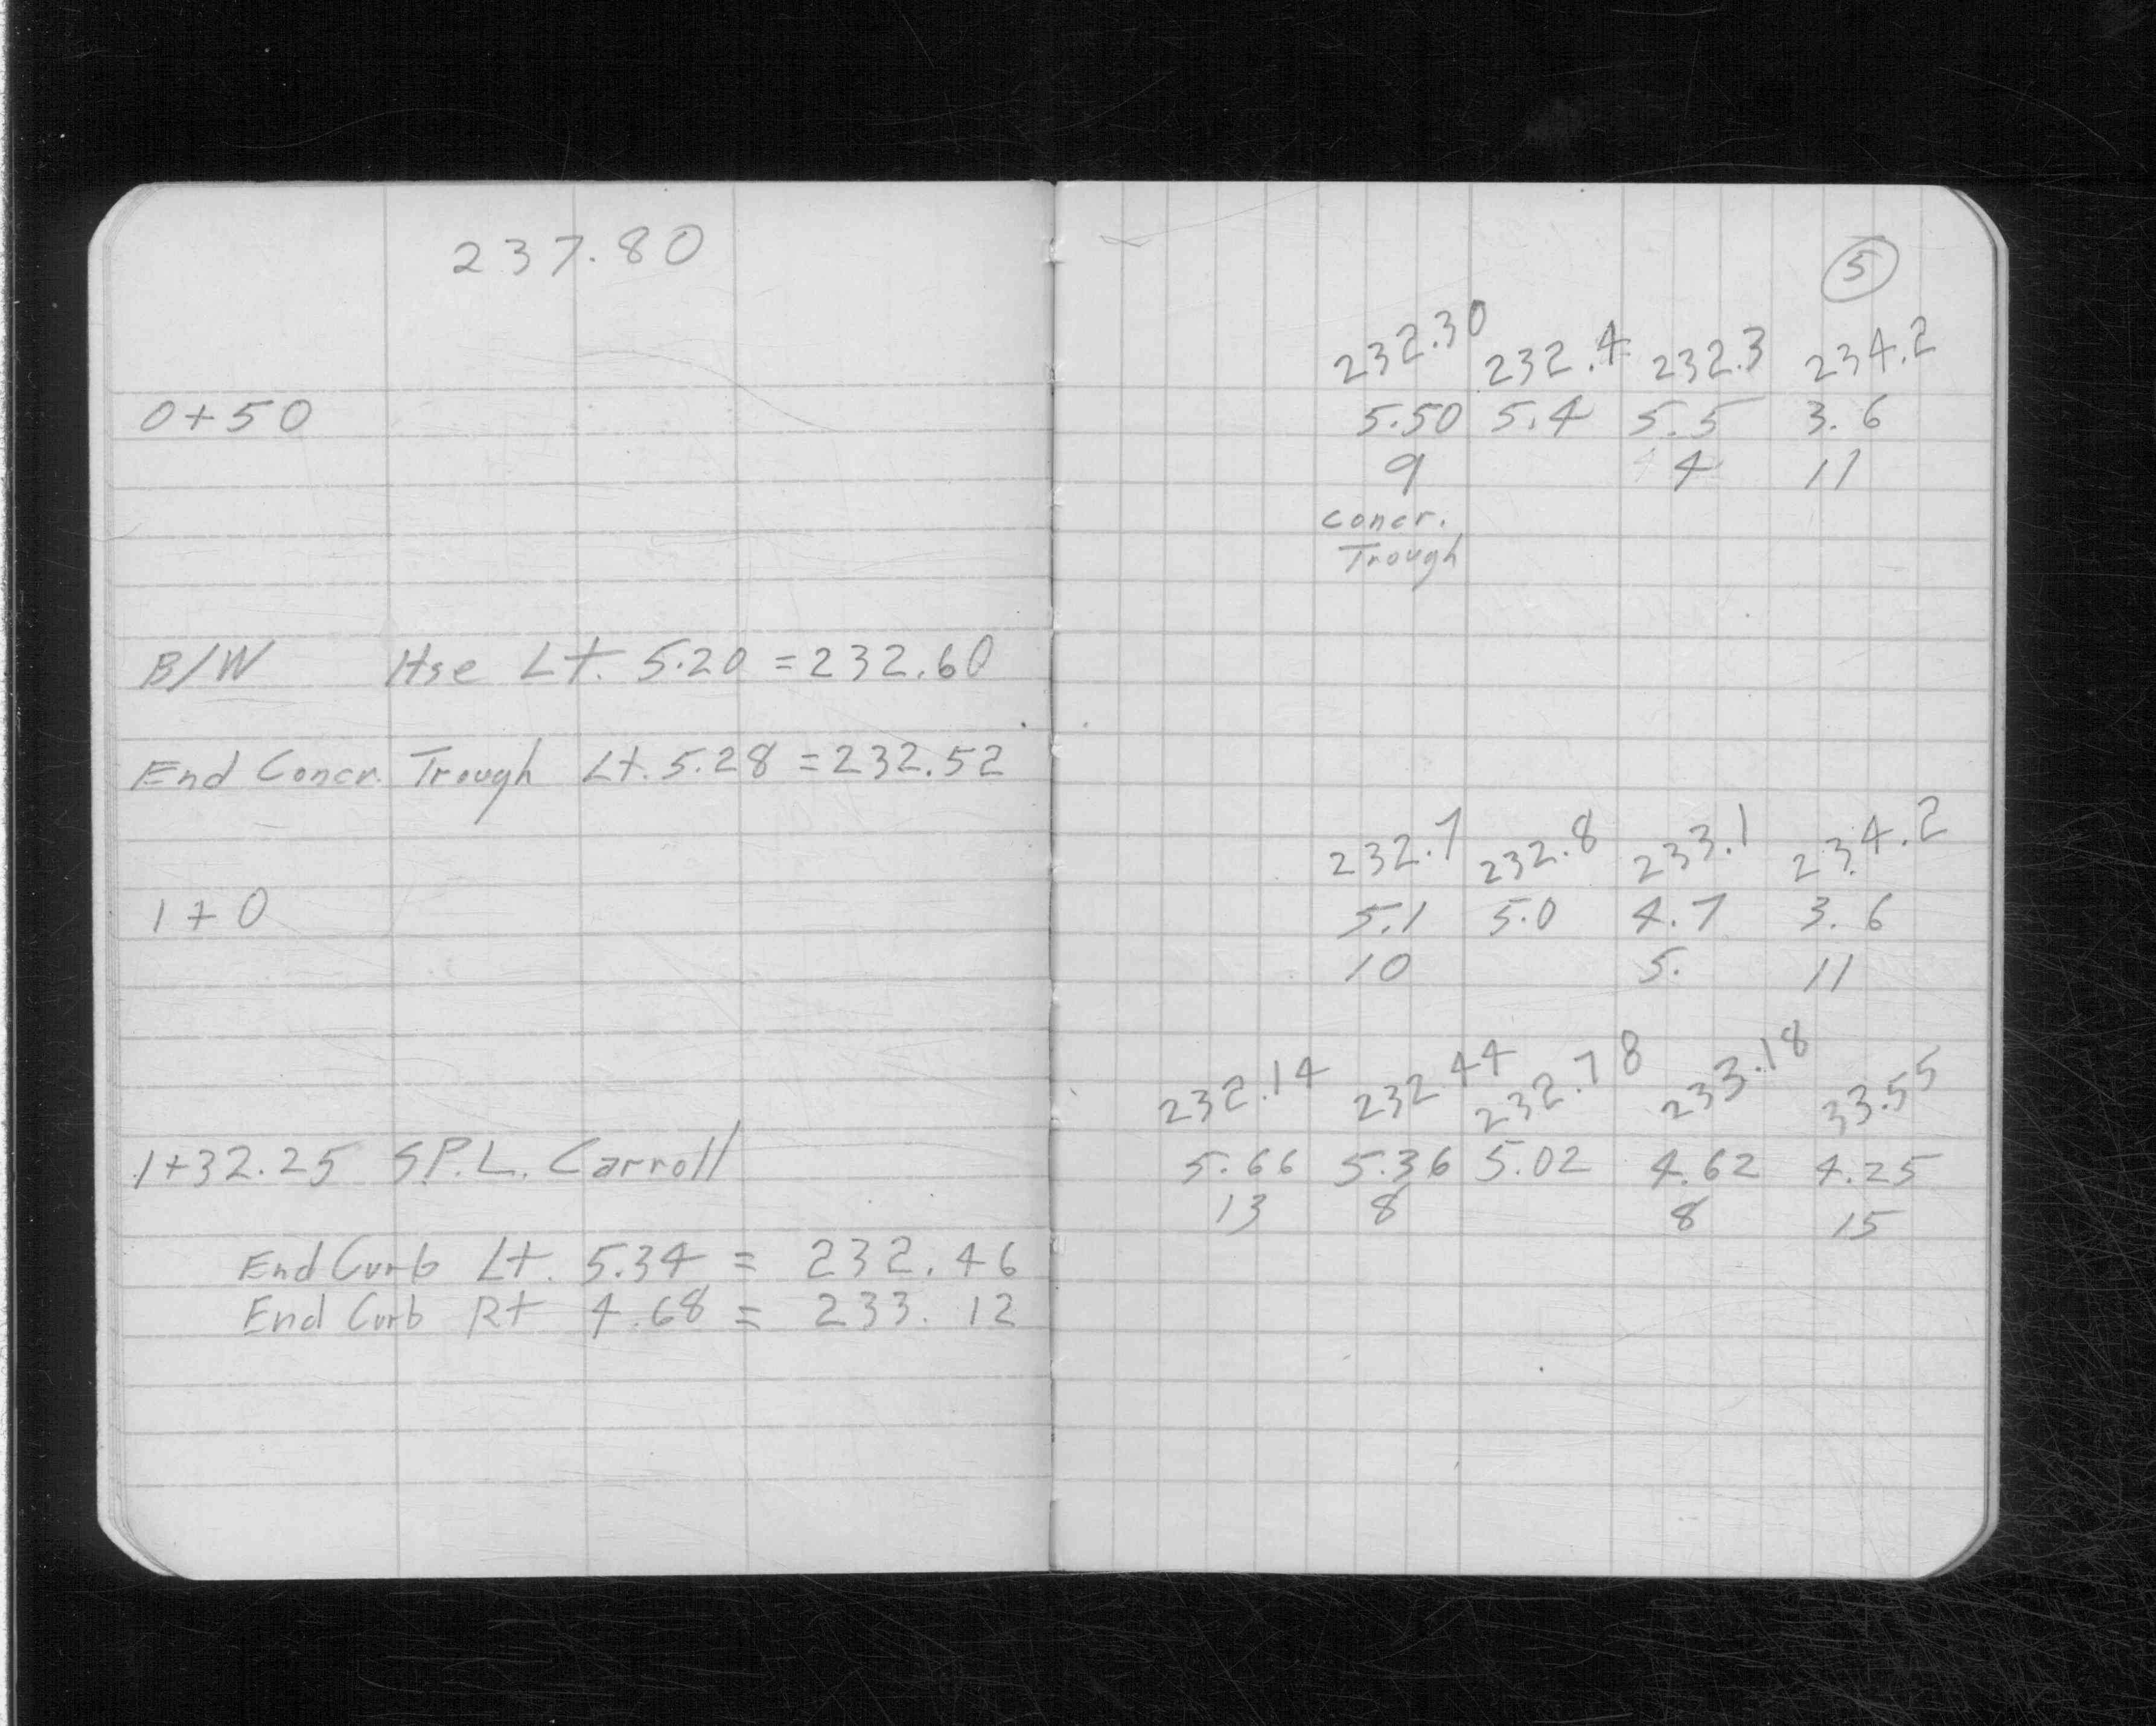 237.80
0+50
B/W Hse Lt. 5.20 = 232.60
End Concr. Trough Lt. 5.28 = 232.52
1+0
1+32.25 S.P.L. Carroll
End Curb Lt. 5.34 = 232.46
End Curb Rt 4.68 = 233.12
5
232.30 232.4 232.3 234.2
5.50 5.4 5.5 3.6
9 4 11
Concr.
Trough
232.7 232.8 233.1 234.2
5.1 5.0 4.7 3.6
10 5. 11
232.14 232.44 232.78 233.18 33.55
5.66 5.36 5.02 4.62 4.25
13 8 8 15